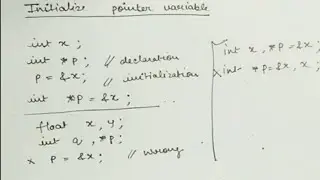 Initialize pointer variable
int x ;
int *p ; // declaration
p = &x ; // initialization
int *p = &x ;
float x, y ;
int a, *p ;
x p = &x ; // wrong
int x, *p = &x ;
x int *p = &x, x ;